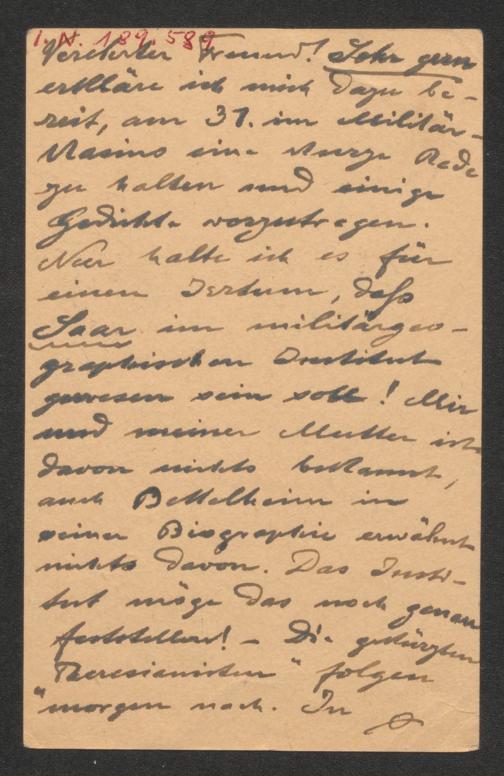 I. N. 189.589
Verehrter Freund! Sehr gern
erkläre ich mich dazu be-
reit, am 31. im Militär-
Kasino eine kurze Rede
zu halten und einige
Gedichte vorzutragen.
Nur halte ich es für
einen Irrtum, daß
Saar im militärgeo-
graphischen Institut
gewesen sein soll! Mir
und meiner Mutter ist
davon nichts bekannt,
auch Bettelheim in
seiner Biographie erwähnt
nichts davon. Das Insti-
tut möge das noch genau
feststellen! – Die gekürzten
"Theresianisten" folgen
morgen nach. In